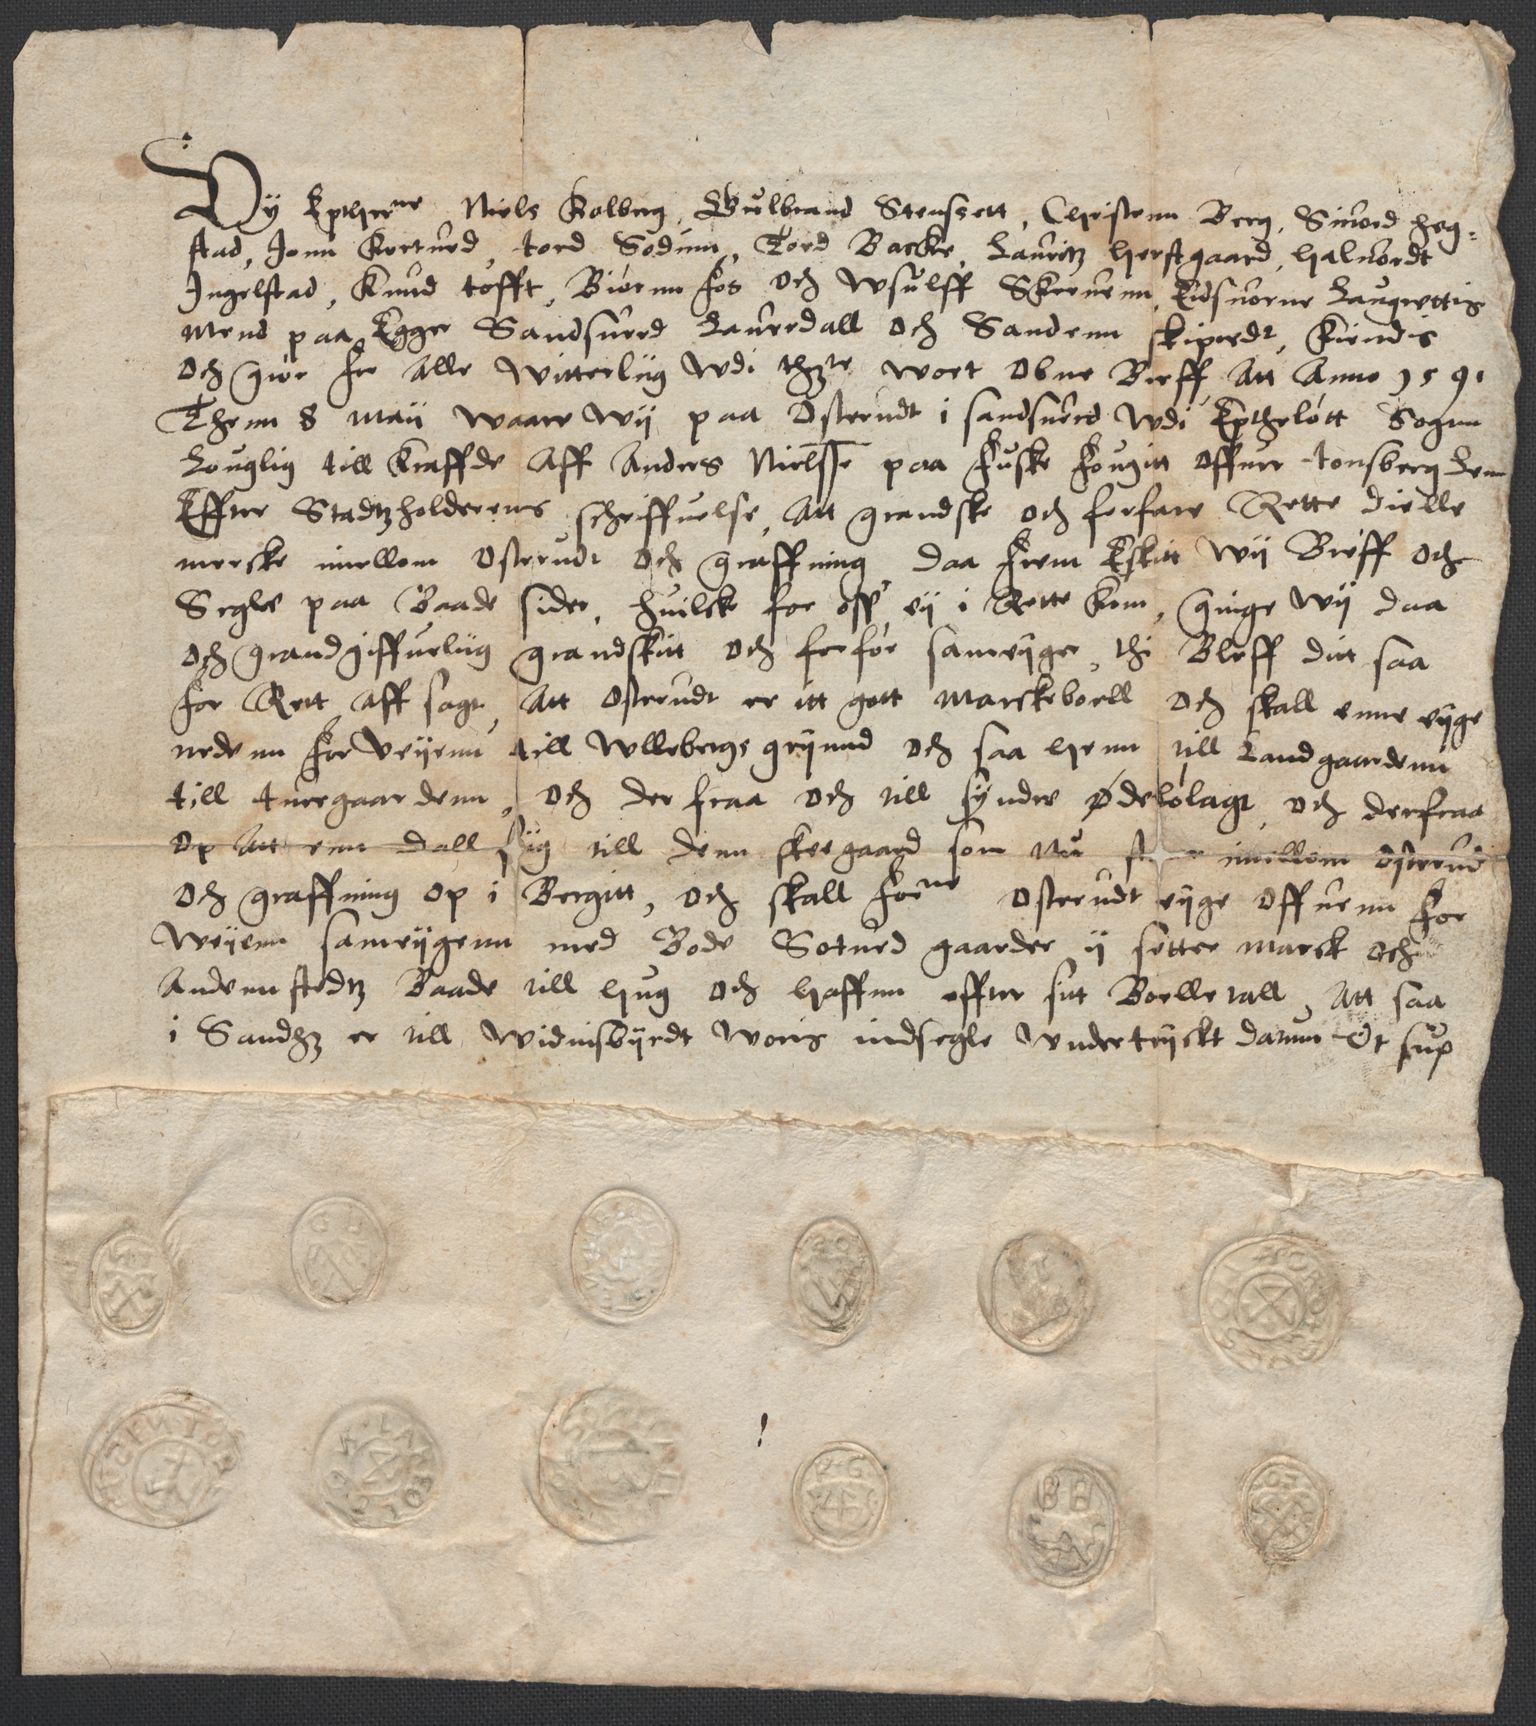 Wÿ Epther:ne Niels Kolberg, Gulbrand Stenssett, Christenn Berg, Siuord Heg=
stad, Jonn Kortued, tord Sodum, Tord Backe, Lauritz Herstgaard, Haluordt
Jngelstad, Knud tofft, Biørnn Fos och Wsulff Skreuenn, Edsuorne Laugrettis
mend paa Egger Sandsuerd Lauerdall och Sandenn skiperdt, Kiendis
och giør for Alle Witterligt Wdi thz:te wort obne Breff, Att Anno 1591
Thenn 8 maÿ waare Wÿ paa Osterudt i sandsuerd Wdi Eptheløtt Sognn
Louglig till Kraffde Aff Anders Nielsse paa Fuske Fougitt offuer tonsberg Lenn
Effter Stadtzholderens schriffuelse, Att grandske och forfare Rette dielle
mercke imellom Osterudt och graffning, daa frem Eskitt Wÿ Breff och
Segle paa Baade sider, huilcke for oss eÿ i Rette Kom, ginge Wÿ daa
och grandgiffuelig grandskitt och forfor sameÿger, thi Bleff ditt saa
for Rett Aff sagt, Att Osterudt er itt gott marckeboell och skall enne eÿge
nedenn for Veÿenn till Wllebergs grÿnnd och saa henn till Landgaardenn
till tuergaardenn, och der fraa och till sÿndre Ødelølagt, och derfraa
op Att enn dall sÿg till denn skeegaard som nu imellom Osterud
och graffning op i Bergitt, och skall for:ne Osterudt eÿge offuenn for
Weÿenn sameÿgenn med Bode Sotued gaarder ÿ setter marck och
Andennstedtz Baade till hug och haffnn effter sitt Boelletall, Att saa
i Sandhz er till Widnisbÿrdt Woris indsegle Wndertrÿckt datum Vt sup